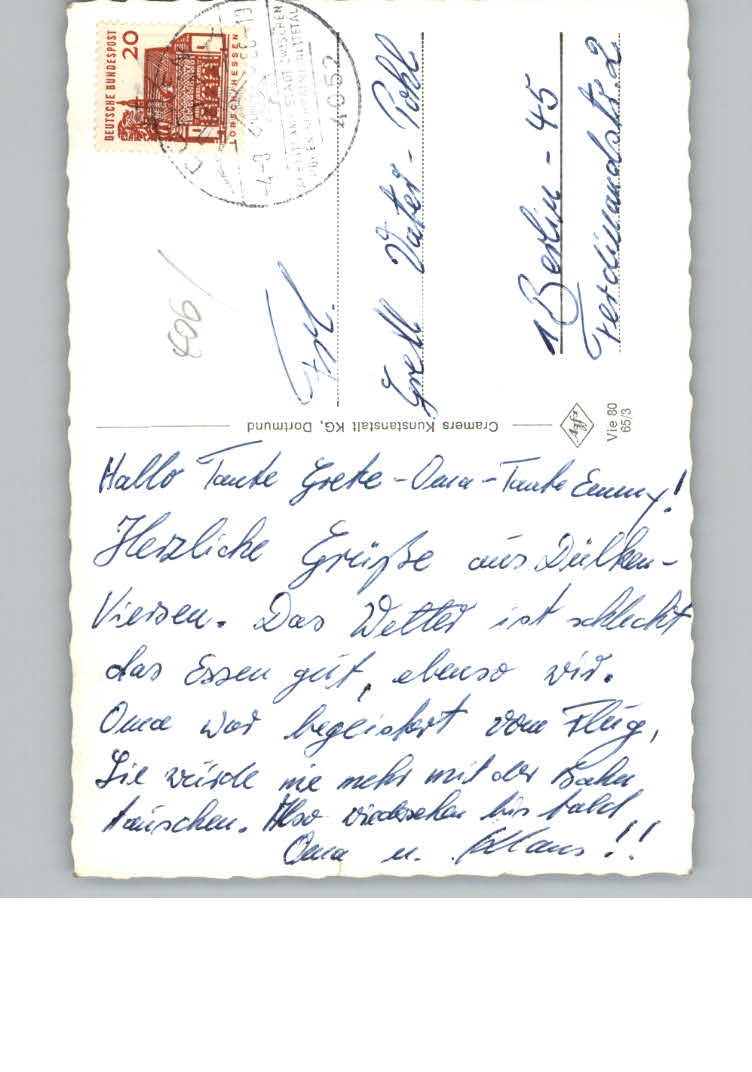 DEUTSCHE BUNDESPOST
20
TORSCH/HESSEN
-4.-8.
4052
406/
Frl.
Gretl Vater-Pohl
1 Berlin-45
Ferdinandstr. 2
Cramers Kunstanstalt KG, Dortmund
Agfa
Vie 80
65/3
Hallo Tante Grete-Oma-Tante Emmy!
Herzliche Grüße aus Dülken-
Viersen. Das Wetter ist schlecht
das Essen gut, ebenso wir.
Oma war begeistert vom Flug,
Sie würde nie mehr mit der Bahn
tauschen. Also wiedersehen bis bald
Oma u. Klaus!!